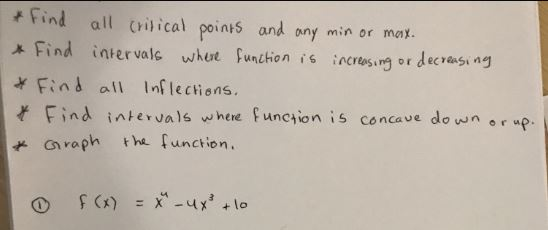 * Find all critical points and any min or max.
* Find intervals where function is increasing or decreasing
* Find all Inflections.
* Find intervals where function is concave down or up.
* Graph the function.
① f(x) = x⁴ - 4x³ + 10